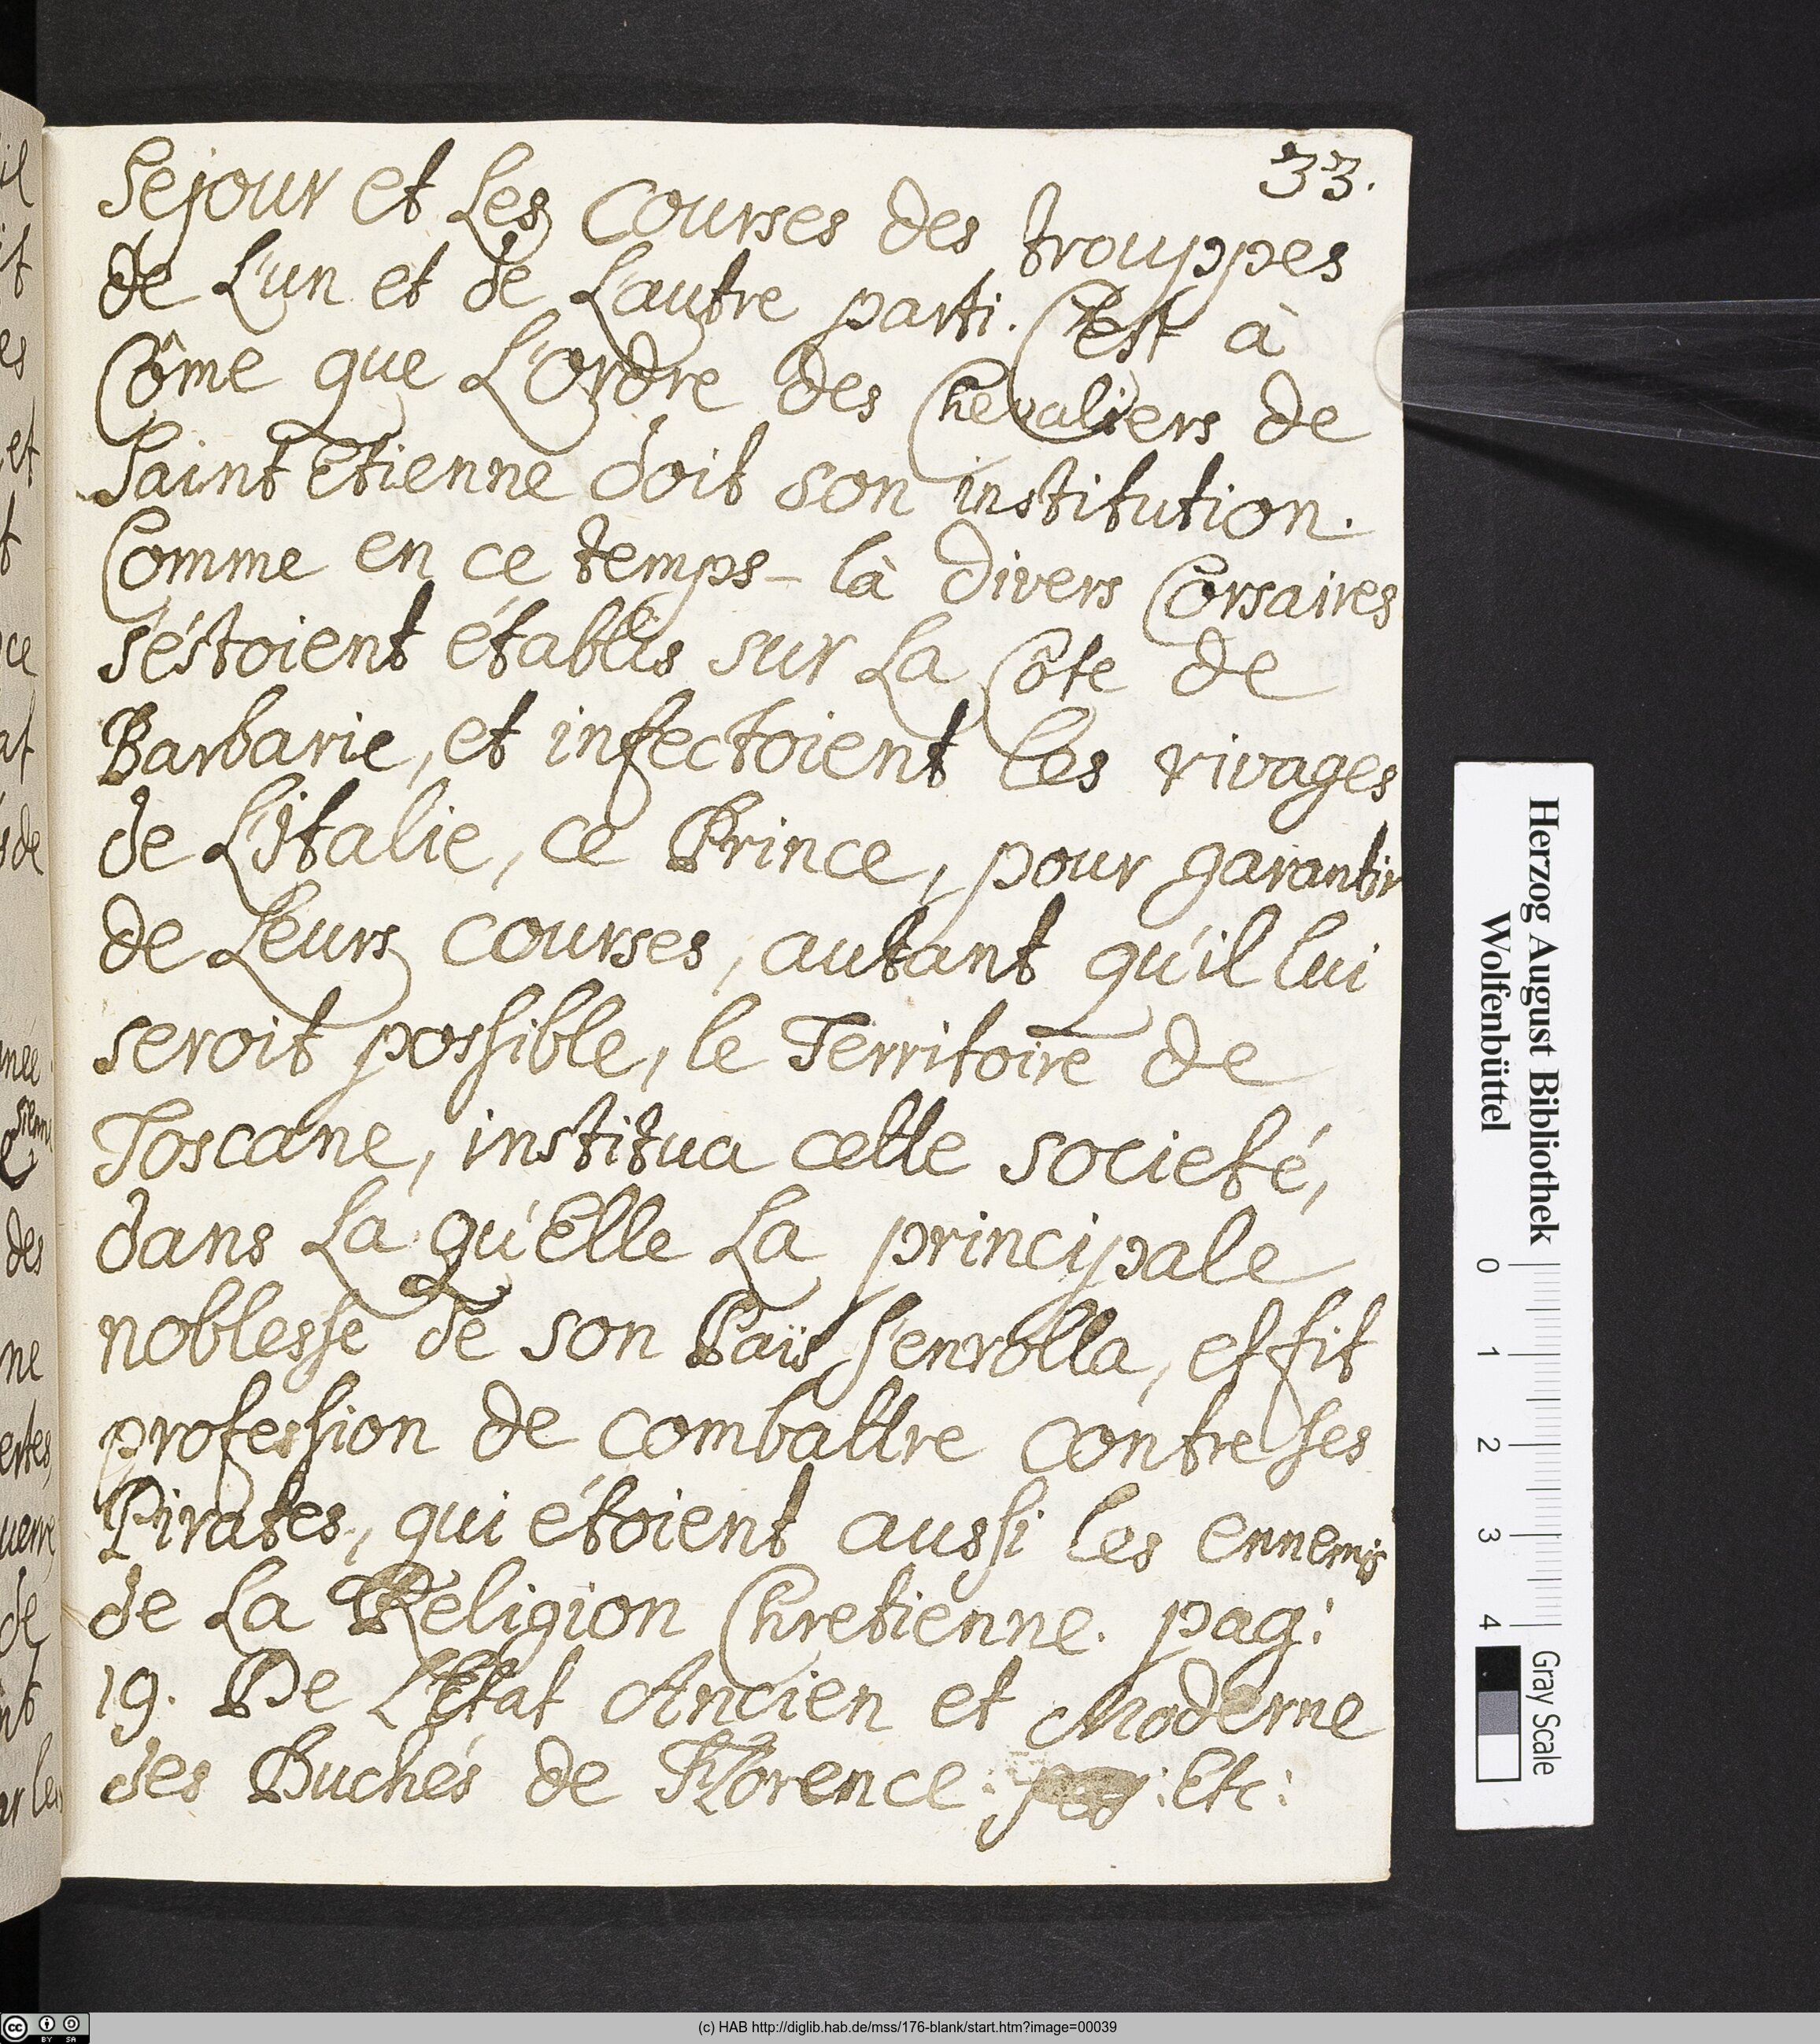 33.
Sejour et Les Courses des trouppes
de L'un et de L'autre parti. C'est à
Côme que L'Ordre des Chevaliers de
Saint Etienne doit son institution.
Comme en ce temps-là divers Corsaires
s'éstoient établis sur La Côte de
Barbarie, et infectoient les rivages
de L'Italie, ce Prince, pour garantir
de Leurs courses, autant qu'il lui
seroit possible, le Territoire de
Toscane, institua cette societé,
dans La qu'Elle La principale
noblesse de son Païs s'enrolla, et fit
profession de combattre contre ses
Pirates, qui étoient aussi les ennemis
de La Religion Chretienne. pag:
19. De L'Etat Ancien et Moderne
des Duchés de Florence: : Etc:
Herzog August Bibliothek
Wolfenbüttel
0 1 2 3 4
Gray Scale
(c) HAB http://diglib.hab.de/mss/176-blank/start.htm?image=00039